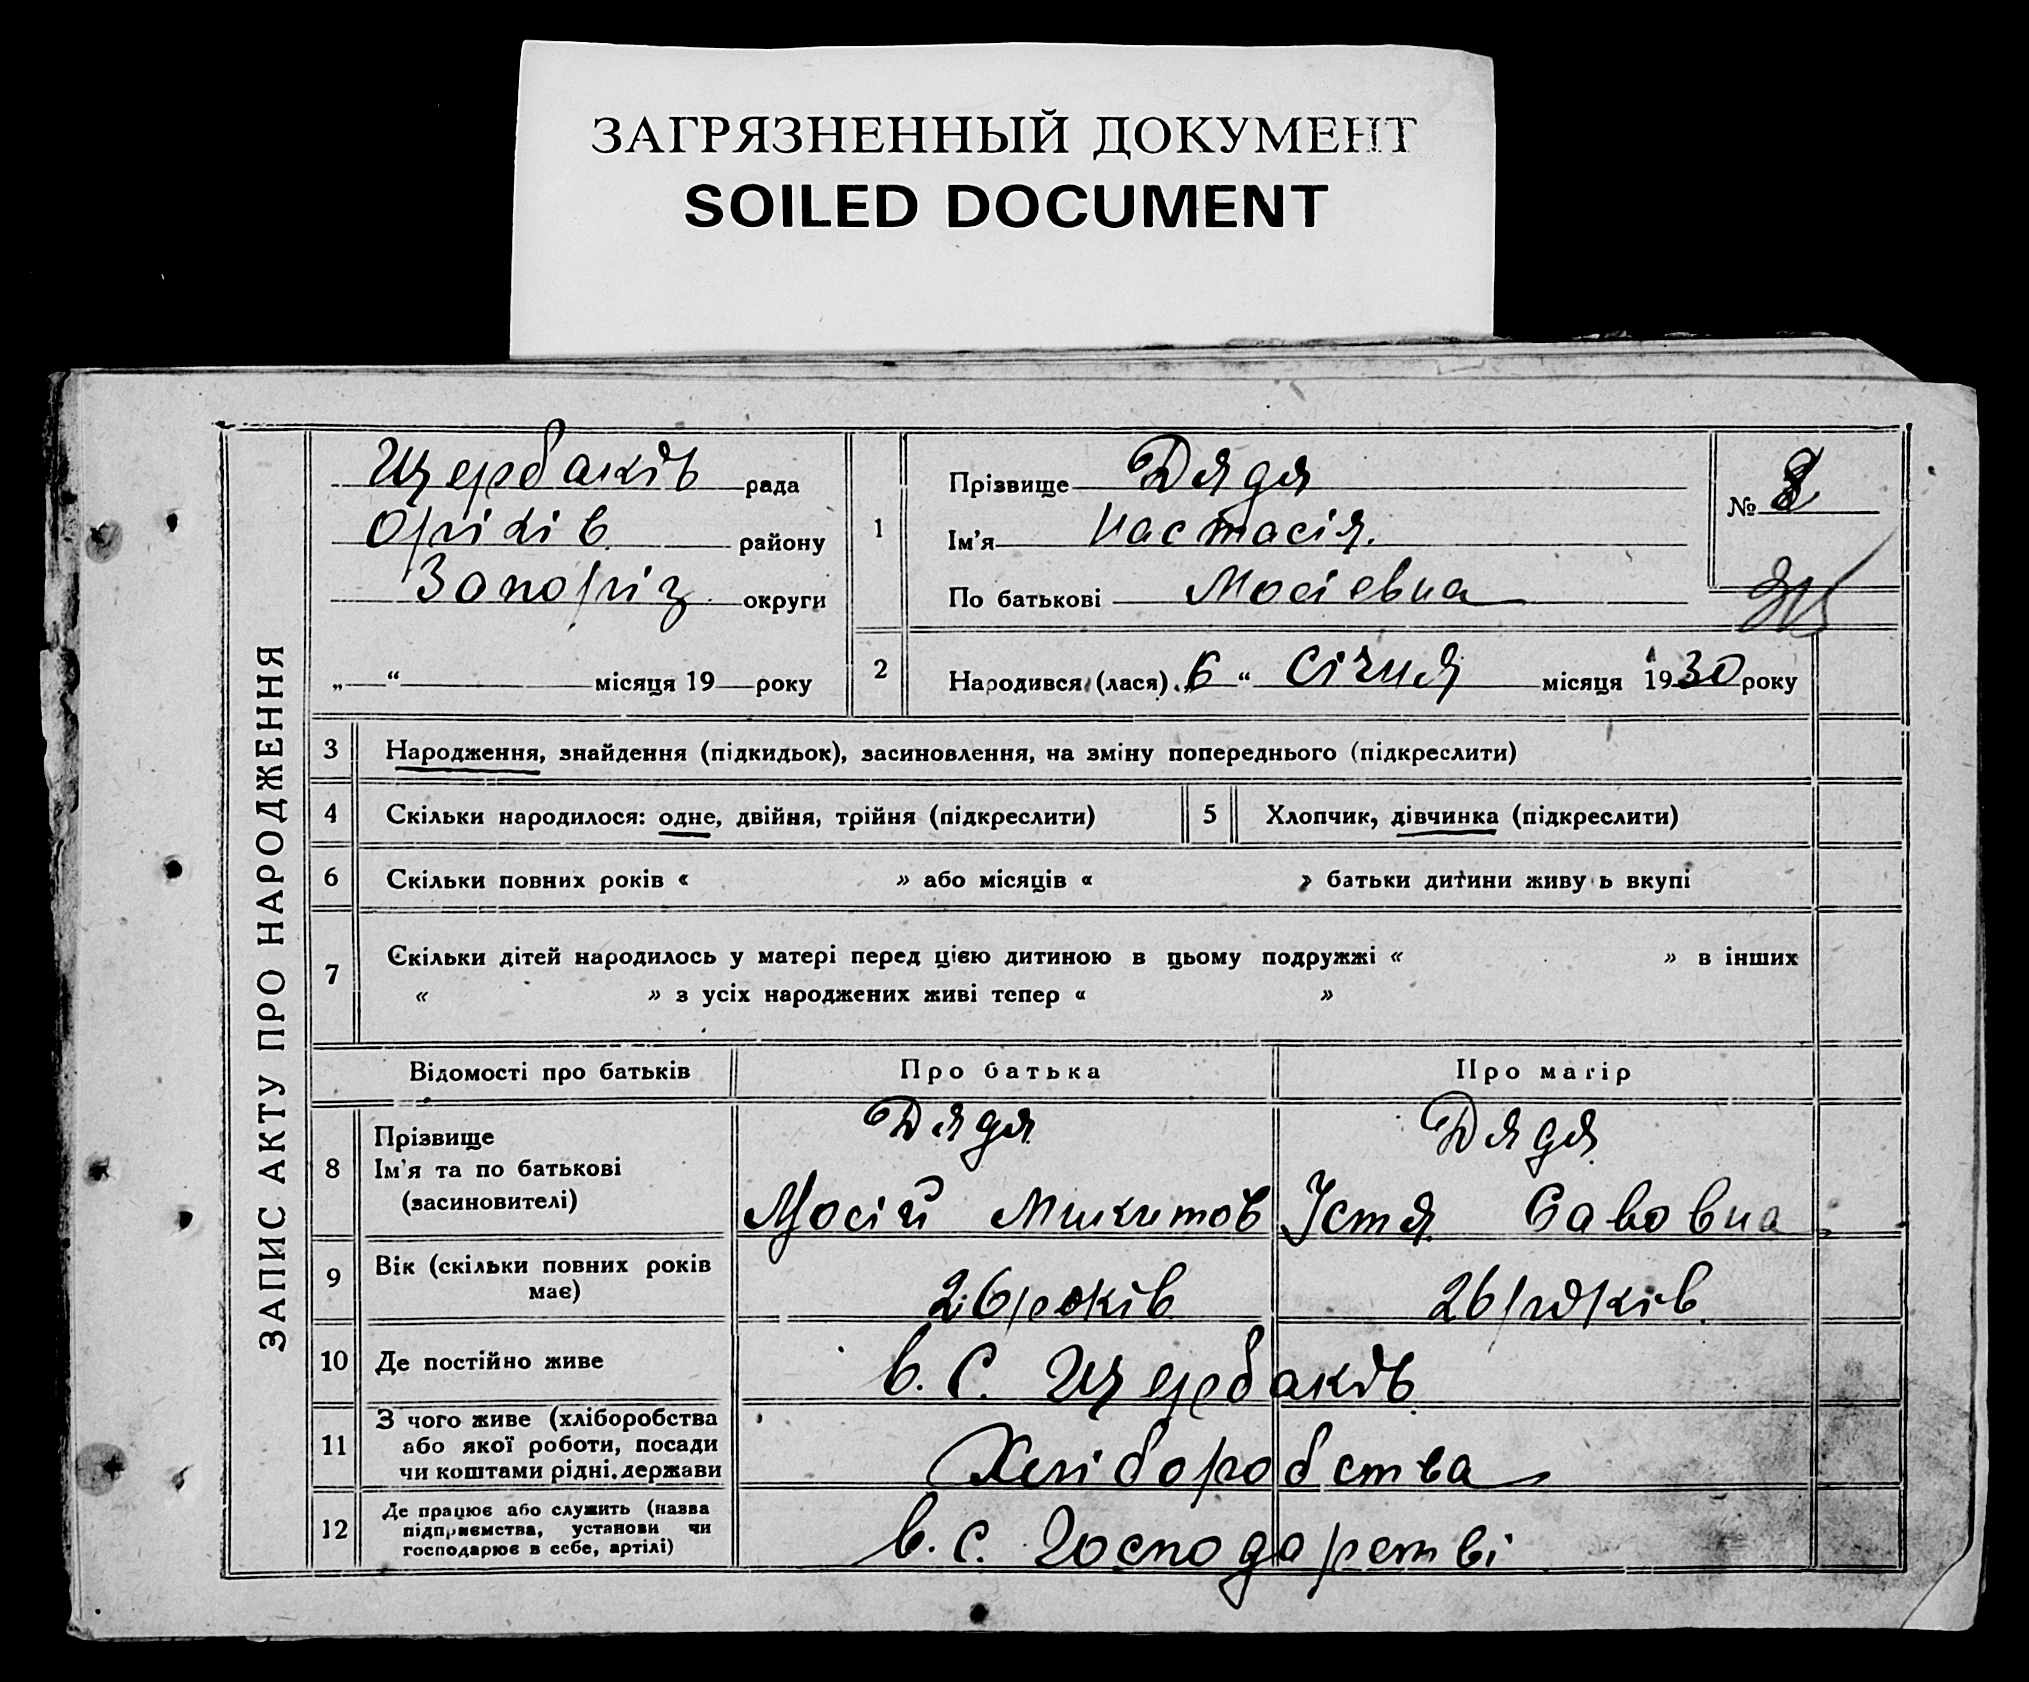 ЗАГРЯЗНЕННЫЙ ДОКУМЕНТ
SOILED DOCUMENT
ЗАПИС АКТУ ПРО НАРОДЖЕННЯ
Щербаків рада
Оріхів району
Запоріз. округи
„ “ місяця 19 року
1
Прізвище Дядя
Ім’я Настасія.
По батькові Мосієвна
№ 8
2
Народився (лася) „ 6 “ Січня місяця 1930 року
3 Народження, знайдення (підкидьок), засиновлення, на зміну попереднього (підкреслити)
4 Скільки народилося: одне, двійня, трійня (підкреслити) 5 Хлопчик, дівчинка (підкреслити)
6 Скільки повних років « » або місяців « » батьки дитини живуть вкупі
7 Скільки дітей народилось у матері перед цією дитиною в цьому подружжі « » в інших
« » з усіх народжених живі тепер « »
Відомості про батьків Про батька Про матір
8 Прізвище Ім’я та по батькові (засиновителі)
Дядя Дядя
Мосій Микитов Устя Савовна
9 Вік (скільки повних років має) 26 років 26 років.
10 Де постійно живе в. С. Щербаків
11 З чого живе (хліборобства або якої роботи, посади чи коштами рідні, держави Хліборобства
12 Де працює або служить (назва підприємства, установи чи господарює в себе, артілі) в. с. Господарстві